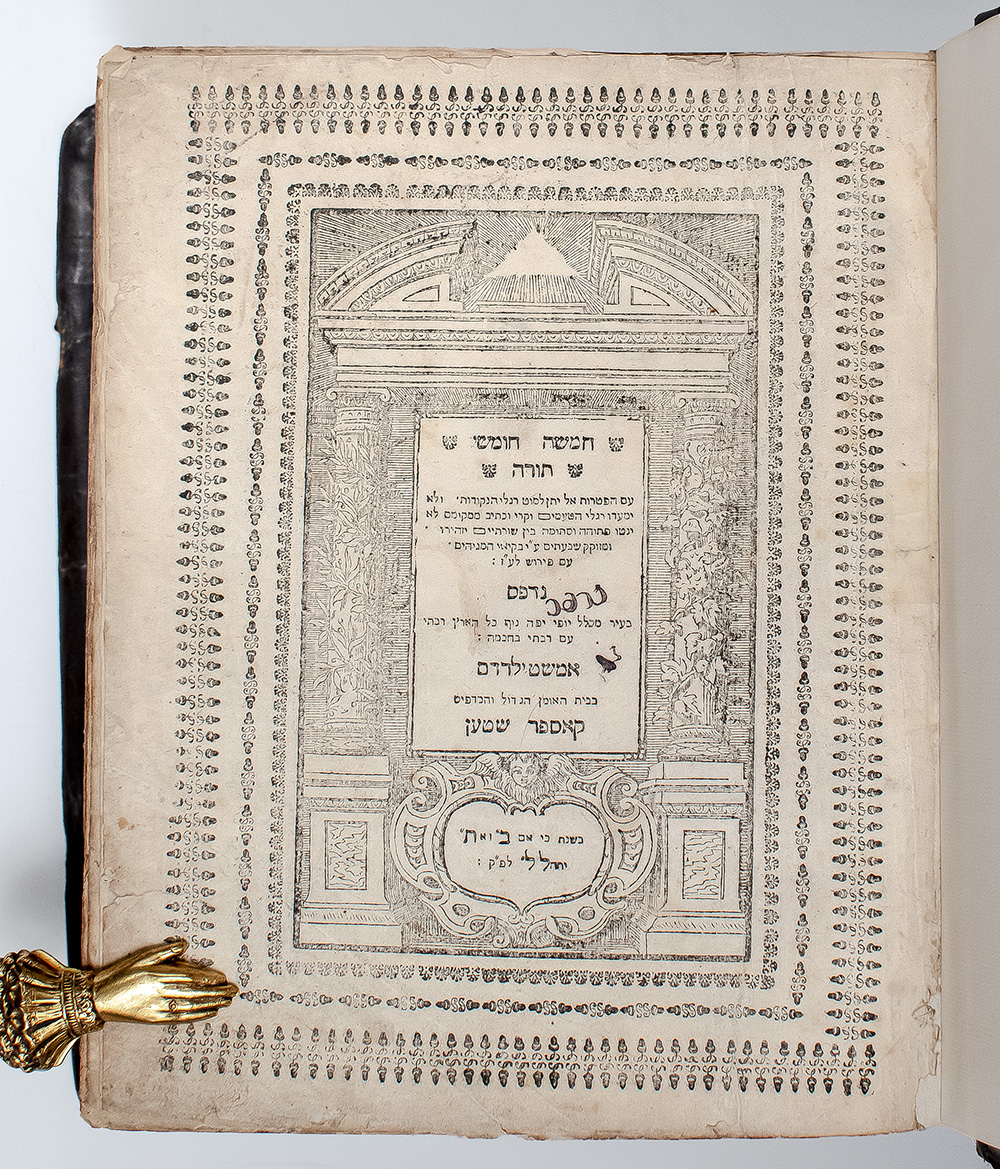 חמשה חומשי
תורה
עם הפטרות אל יתן למוט רגלי הנקודות׳ ולא
ימעדו רגלי הטעמים וקרי וכתיב ממקומם לא
ינטו פתוחה וסתומה בין שורתיים יזהירו
ומזוקק שבעתים ע״י בקיאי המגיהים׳
עם פירוש לע״ז :
נדפס
נדפס
בעיר מכלל יופי יפה נוף כל הארץ רבתי
עם רבתי בחכמה :
אמשטילרדם
בבית האומן הגדול והמדפיס
קאספר שטען
בשנת כי אם ב׳זאת״
יתהלל׳ לפ״ק :